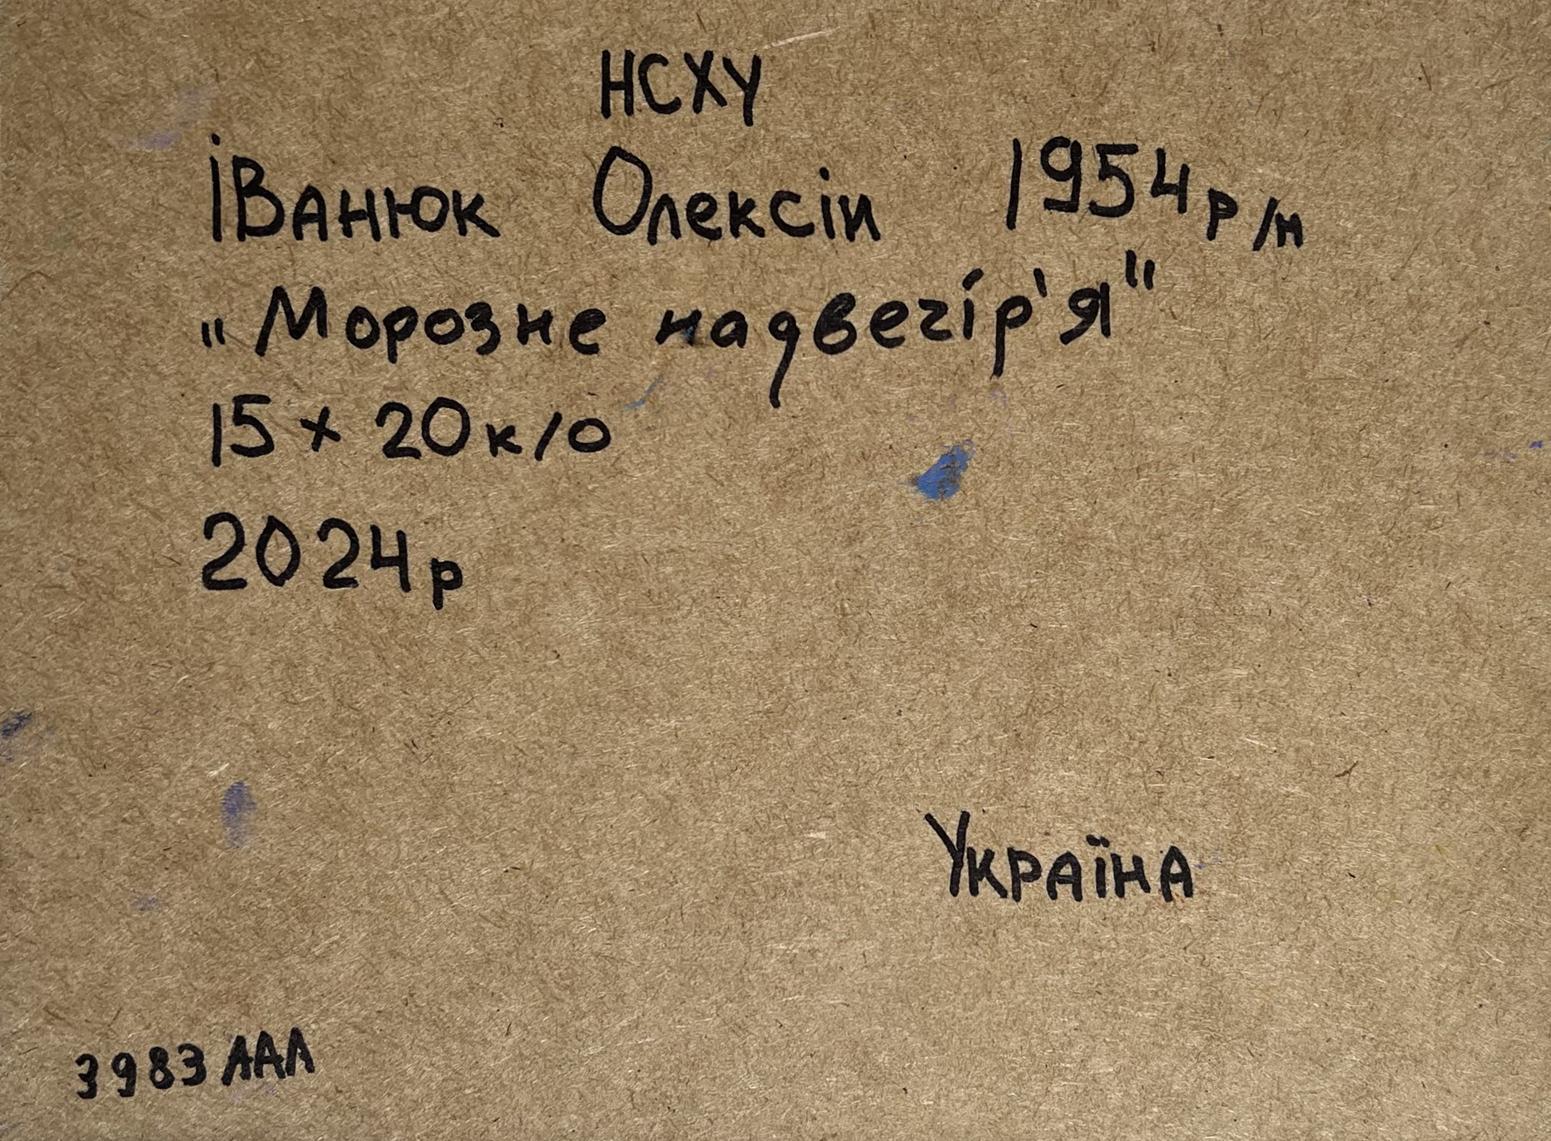 НСХУ
Іванюк Олексій 1954 р/н
„Морозне надвечір'я"
15 x 20 к/о
2024р
Україна
3983 ААЛ